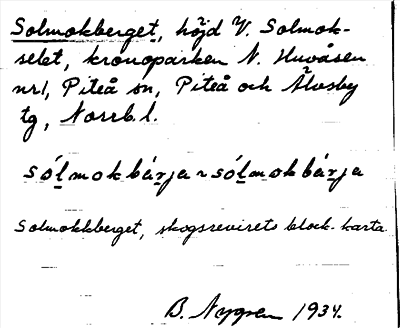 Solmokberget, höjd V. Solmok-
selet, kronoparken N. Huvåsen
nr1, Piteå sn, Piteå och Älvsby
tg, Norrb. l.
sólmokbárja ~ sólmokbárja
Solmokkberget, skogsrevirets block-karta
B. Nygren 1934.